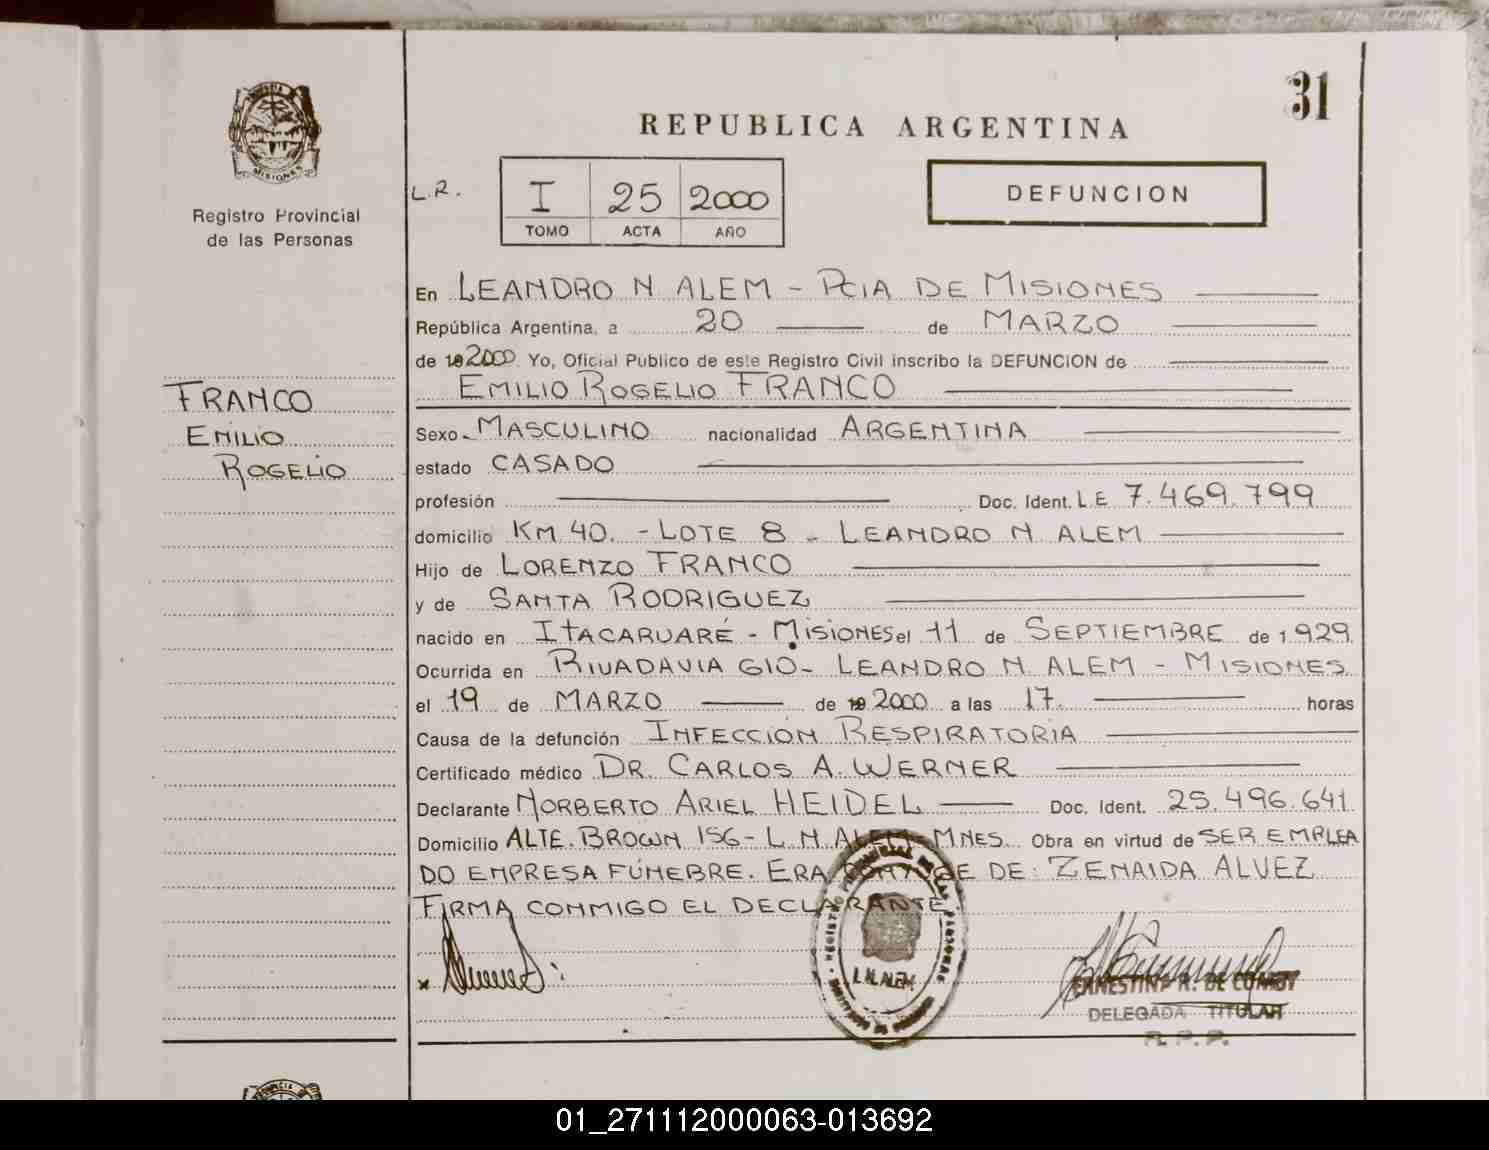 31
REPUBLICA ARGENTINA
PROVINCIA DE
MISIONES
Registro Provincial
de las Personas
L.R.
I 25 2000
TOMO ACTA AÑO
DEFUNCION
En LEANDRO N ALEM - PCIA DE MISIONES
República Argentina, a 20 de MARZO
de 192000. Yo, Oficial Público de este Registro Civil inscribo la DEFUNCION de
EMILIO ROGELIO FRANCO
FRANCO
EMILIO
ROGELIO
Sexo MASCULINO nacionalidad ARGENTINA
estado CASADO
profesión Doc. Ident. LE 7.469.799
domicilio KM 40. - LOTE 8 - LEANDRO N ALEM
Hijo de LORENZO FRANCO
y de SANTA RODRIGUEZ
nacido en ITACARUARÉ - MISIONES el 11 de SEPTIEMBRE de 1.929
Ocurrida en RIVADAVIA 610 - LEANDRO N. ALEM - MISIONES
el 19 de MARZO de 192000 a las 17. horas
Causa de la defunción INFECCIÓN RESPIRATORIA
Certificado médico DR. CARLOS A. WERNER
Declarante NORBERTO ARIEL HEIDEL Doc. Ident. 25.496.641
Domicilio ALTE. BROWN 156 - L. N. ALEM - MNES. Obra en virtud de SER EMPLEA
DO EMPRESA FÚNEBRE. ERA CONYUGE DE: ZENAIDA ALVEZ
FIRMA CONMIGO EL DECLARANTE.
L.N. ALEM
DELEGADA TITULAR
R.P.P.
01_271112000063-013692